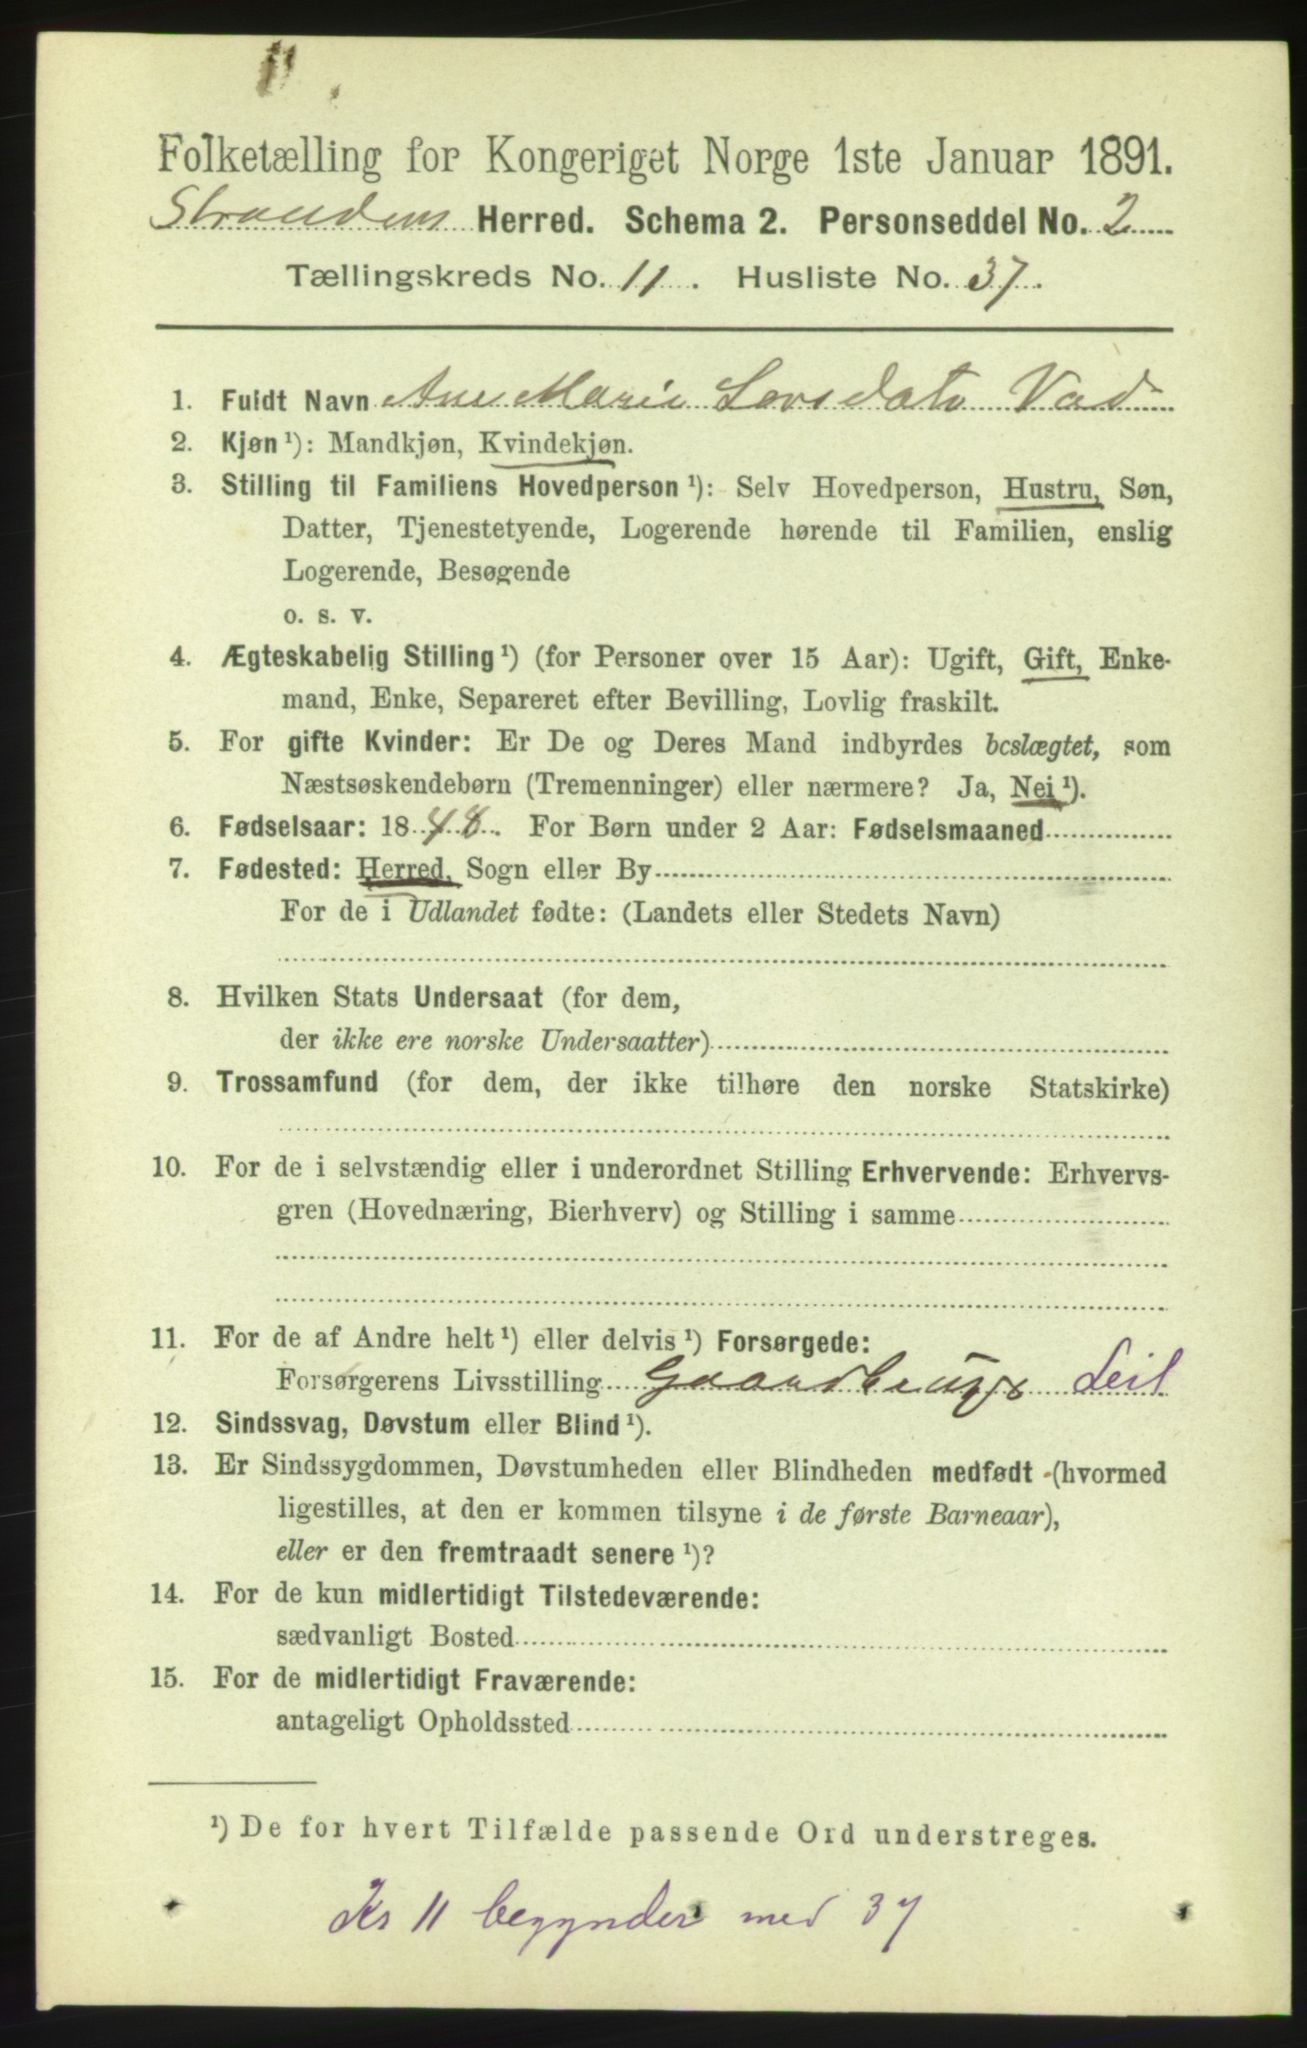 11
Folketælling for Kongeriget Norge 1ste Januar 1891.
Strandens Herred. Schema 2. Personseddel No. 2
Tællingskreds No. 11. Husliste No. 37.
1. Fuldt Navn Ane Marie Larsdatr Vad
2. Kjøn ¹): Mandkjøn, Kvindekjøn.
3. Stilling til Familiens Hovedperson ¹): Selv Hovedperson, Hustru, Søn,
Datter, Tjenestetyende, Logerende hørende til Familien, enslig
Logerende, Besøgende
o. s. v.
4. Ægteskabelig Stilling ¹) (for Personer over 15 Aar): Ugift, Gift, Enke-
mand, Enke, Separeret efter Bevilling, Lovlig fraskilt.
5. For gifte Kvinder: Er De og Deres Mand indbyrdes beslægtet, som
Næstsøskendebørn (Tremenninger) eller nærmere? Ja, Nei ¹).
6. Fødselsaar: 1848. For Børn under 2 Aar: Fødselsmaaned
7. Fødested: Herred, Sogn eller By
For de i Udlandet fødte: (Landets eller Stedets Navn)
8. Hvilken Stats Undersaat (for dem,
der ikke ere norske Undersaatter)
9. Trossamfund (for dem, der ikke tilhøre den norske Statskirke)
10. For de i selvstændig eller i underordnet Stilling Erhvervende: Erhvervs-
gren (Hovednæring, Bierhverv) og Stilling i samme
11. For de af Andre helt ¹) eller delvis ¹) Forsørgede:
Forsørgerens Livsstilling Gaardbruger Leil
12. Sindssvag, Døvstum eller Blind ¹).
13. Er Sindssygdommen, Døvstumheden eller Blindheden medfødt (hvormed
ligestilles, at den er kommen tilsyne i de første Barneaar),
eller er den fremtraadt senere ¹)?
14. For de kun midlertidigt Tilstedeværende:
sædvanligt Bosted
15. For de midlertidigt Fraværende:
antageligt Opholdssted
¹) De for hvert Tilfælde passende Ord understreges.
Krs 11 begynder med 37